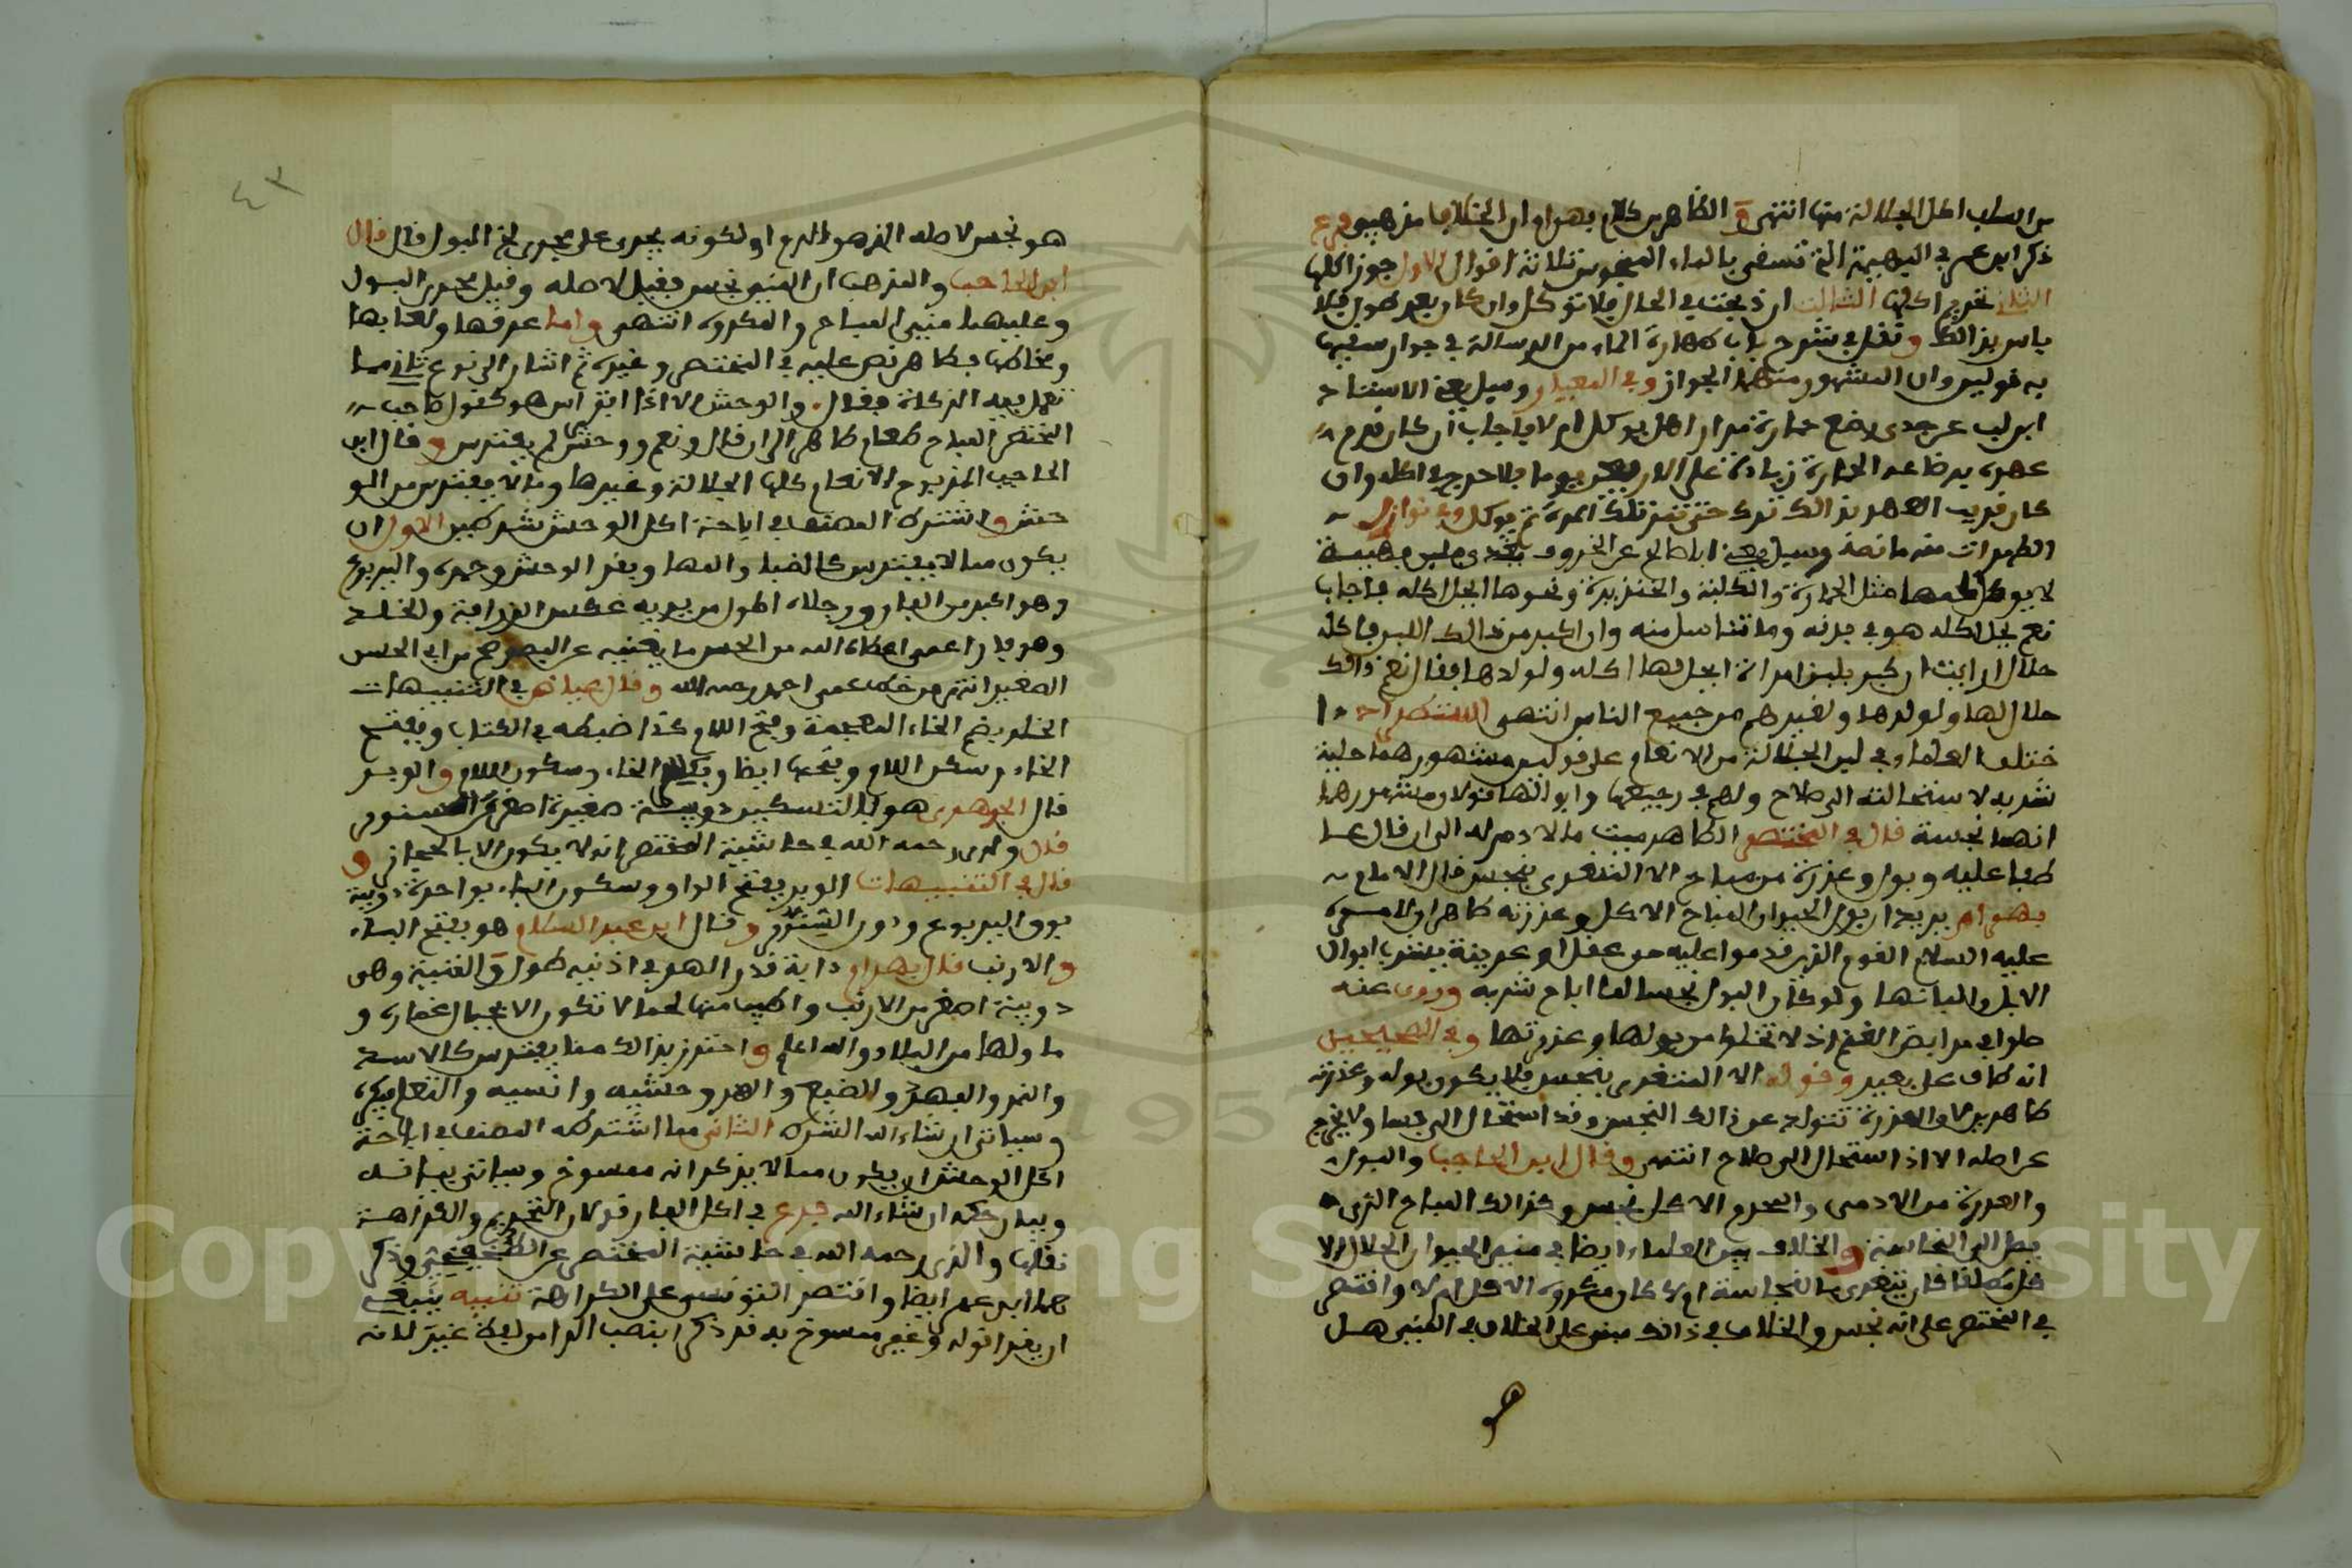 من السلف اكل الجلالة منها انتهى و الظاهر من كلام بهرام ان الخلاف مذهبي فرع
ذكر ابن عمر في البهيمة التي تسقى بالماء المنجوس ثلاثة اقوال الاول جوز اكلها
الثاني تحريم اكلها الثالث ان ذبحت في الحال فلا توكل وان كان بعد طول فلا
باس بذالك ونقل في شرح باب طهارة الماء من الرسالة في جواز سقيها
به قولين وان المشهور منهما الجواز وفي المعيار وسيل يعني الاستاذ
ابن لب عن جدي رضع حمارة مدة اراد اهل يوكل ام لا فاجاب ان كان قدم
عهده برضاعه الحمارة زيادة على الاربعين يوما فلا حرج في اكله وان
كان قريب العهد بذالك ترك حتى تتم تلك المدة ثم يوكل وفي نوازل
الطهرات منه ما نصه وسيل يعني ابا صالح عن الخروف يغذى بلبن بهيمة
لا يوكل لحمها مثل الحمارة والكلبة والخنزيرة ونحوها ايحل اكله فاجاب
نعم يحل اكله هو في بدنه وما تناسل منه وان اكبر من ذالك اللبن فاكله
حلال ارايت ان كبر بلبن امراة ايحل لها اكله ولولدها فقال نعم ذالك
حلال لها ولولدها ولغيرهم من جميع الناس انتهى الاستطراد ا
ختلف العلماء في لبن الجلالة من الانعام على قولين مشهورهما حلية
شربه لاستحالته الى صلاح ولهم في رجيعها وابوالها قولان ومشهورهما
انهما نجسة قال في المختصر الطاهر ميت ما لا دم له الى ان قال عـ
طفا عليه وبول وعذرة من مباح الا المتغذي بنجس قال الامام
بهرام يريد ان بول الحيوان المباح الاكل وعذرته طاهران لامره
عليه السلام القوم الذين قدموا عليه من عقل او عرينة بشرب ابوال
الابل والبانها ولو كان البول نجسا لما اباح شربه وروي عنه
صلوا في مرابض الغنم اذ لا تخلوا من بولها وعذرتها وفي الصحيحين
انه طاف على بعير وقوله الا المتغذي بنجس فلا يكون بوله وعذرته
طاهرين لان العذرة تتولد عن ذالك النجس وقد استحال الى فساد لا يخرج
عن اصله الا اذا استحال الى صلاح انتهى وقال ابن الحاجب والبول
والعذرة من الادمي والمحرم الاكل نجس وكذالك المباح الذي
يصل الى النجاسة والخلاف بين العلماء ايضا في مني الحيوان الحلال الا
كل مطلقا كان يتغذى بالنجاسة ام لا كان مكروه الاكل ام لا واقتصر
في المختصر على انه نجس والخلاف في ذالك مبني على الخلاف في المني هل
هو
٤٣
هو نجس لاصله الذي هو الدم او لكونه يجري على مجرى البول قال قال
ابن الحاجب والمذهب ان المني نجس فقيل لاصله وقيل مجرى البول
وعليهما مني المباح والمكروه انتهى واما عرقها ولعابها
ومخاطها فطاهر نص عليه في المختصر وغيره ثم اشار الى نوع ثان مما
تعمل فيه الزكاة فقال والوحش الا اذا افترس هو كقول صاحب
المختصر المباح طعام طاهر الى ان قال ونعم ووحش لم يفترس وقال ابن
الحاجب المذبوح الانعام كلها الجلالة وغيرها وما لا يفترس من الو
حش واشترط المصنف في اباحة اكل الوحش شرطين الاول ان
يكون مما لا يفترس كالضبا والمها وبقر الوحش وحمره واليربوع
وهو اكبر من الفار ورجلاه اطول من يديه عكس الزرافة والخلد
وهو فار اعمى اعطاه الله من الحس ما يغنيه عن البصر صح من ابي الحسن
الصغير انتهى من خط عمي احمد رحمه الله وقال عياض في التنبيهات
الخلد بضم الخاء المعجمة وفتح اللام كذا ضبطه في الكتاب وبفتح
الخاء وسكن اللام وبفتحها ايضا وبكسر الخاء وسكون اللام والوبر
قال الجوهري هو بالتسكين دويبة صغيرة اصغر من السنور
قال والدي رحمه الله في حاشية المختصر انه لا يكون الا بالحجاز و
قال في التنبيهات الوبر بفتح الواو وسكون الباء بواحدة دويبة
فوق اليربوع ودون السنور وقال ابن عبد السلام هو بفتح الباء
والارنب قال بهرام دابة قدر الهر في اذنيه طول والقنية وهي
دويبة اصغر من الارنب واطيب منها لحما لا تكون الا بجبال غمارة و
ما ولها من البلاد والله اعلم واحترز بذالك مما يفترس كالاسد
والنمر والفهد والضبع والهر وحشيه وانسيه والثعلب
وسياتي ان شاء الله الشرط الثاني مما اشترطه المصنف في اباحة
اكل الوحش ان يكون مما لا يذكر انه ممسوخ وسياتي بيانه
وبيان حكمه ان شاء الله فرع في اكل الفار قولان التحريم والكراهة
نقلهما والدي رحمه الله في حاشية المختصر عن الطخيخي وذكر
هما ابن عمر ايضا واقتصر التونسي على الكراهة تنبيه ينبغي
ان يقرا قوله وغير ممسوخ به قد ذكر ا بنصب الراء من لفظ غير لانه